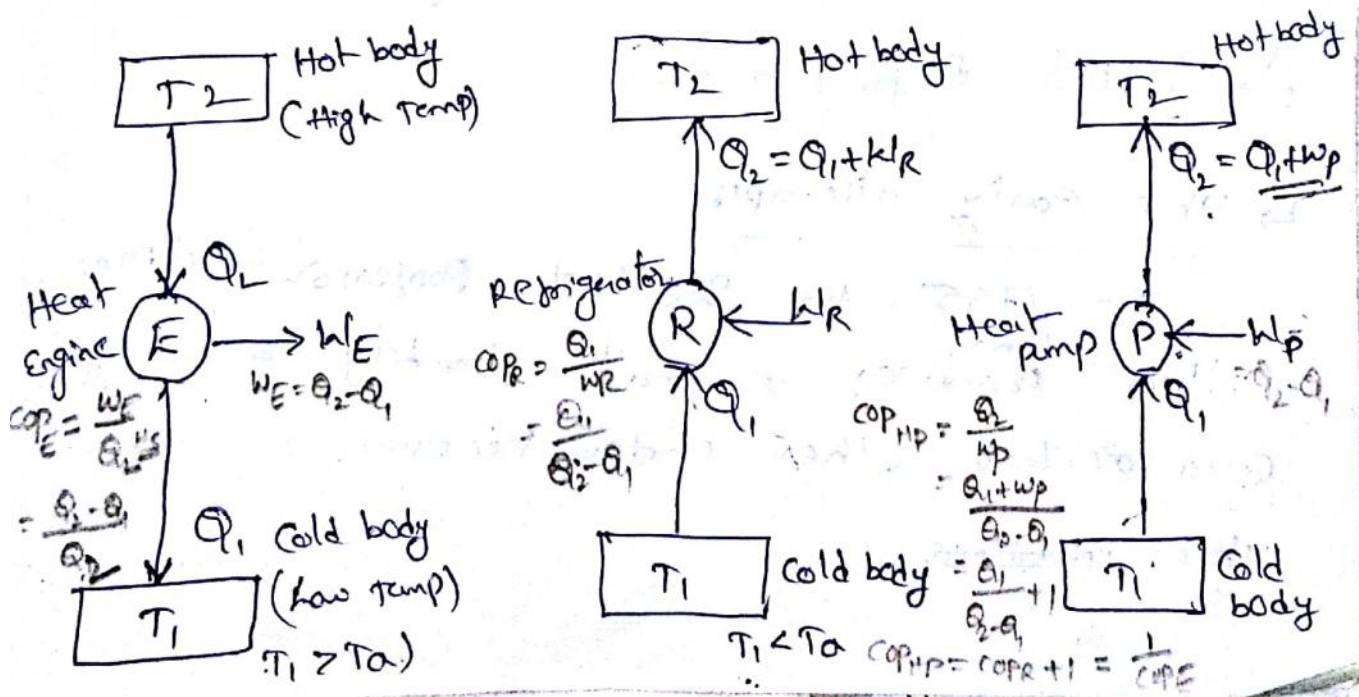 Hot body
T2
(High Temp)
Q2
Heat
Engine
E
WE
WE = Q2-Q1
COPE = WE
Q2
= Q2-Q1
Q2
Q1
Cold body
(Low Temp)
T1
T1 > Ta)
Hot body
T2
Q2 = Q1+WR
Refrigerator
R
WR
COPR = Q1
WR
= Q1
Q2-Q1
Q1
T1
Cold body
T1 < Ta
Hot body
T2
Q2 = Q1+Wp
Heat
pump
P
Wp
= Q2-Q1
Q1
COPHP = Q2
Wp
= Q1+Wp
Q2-Q1
= Q1 + 1
Q2-Q1
T1
Cold
body
COPHP = COPR + 1 = 1
COPE